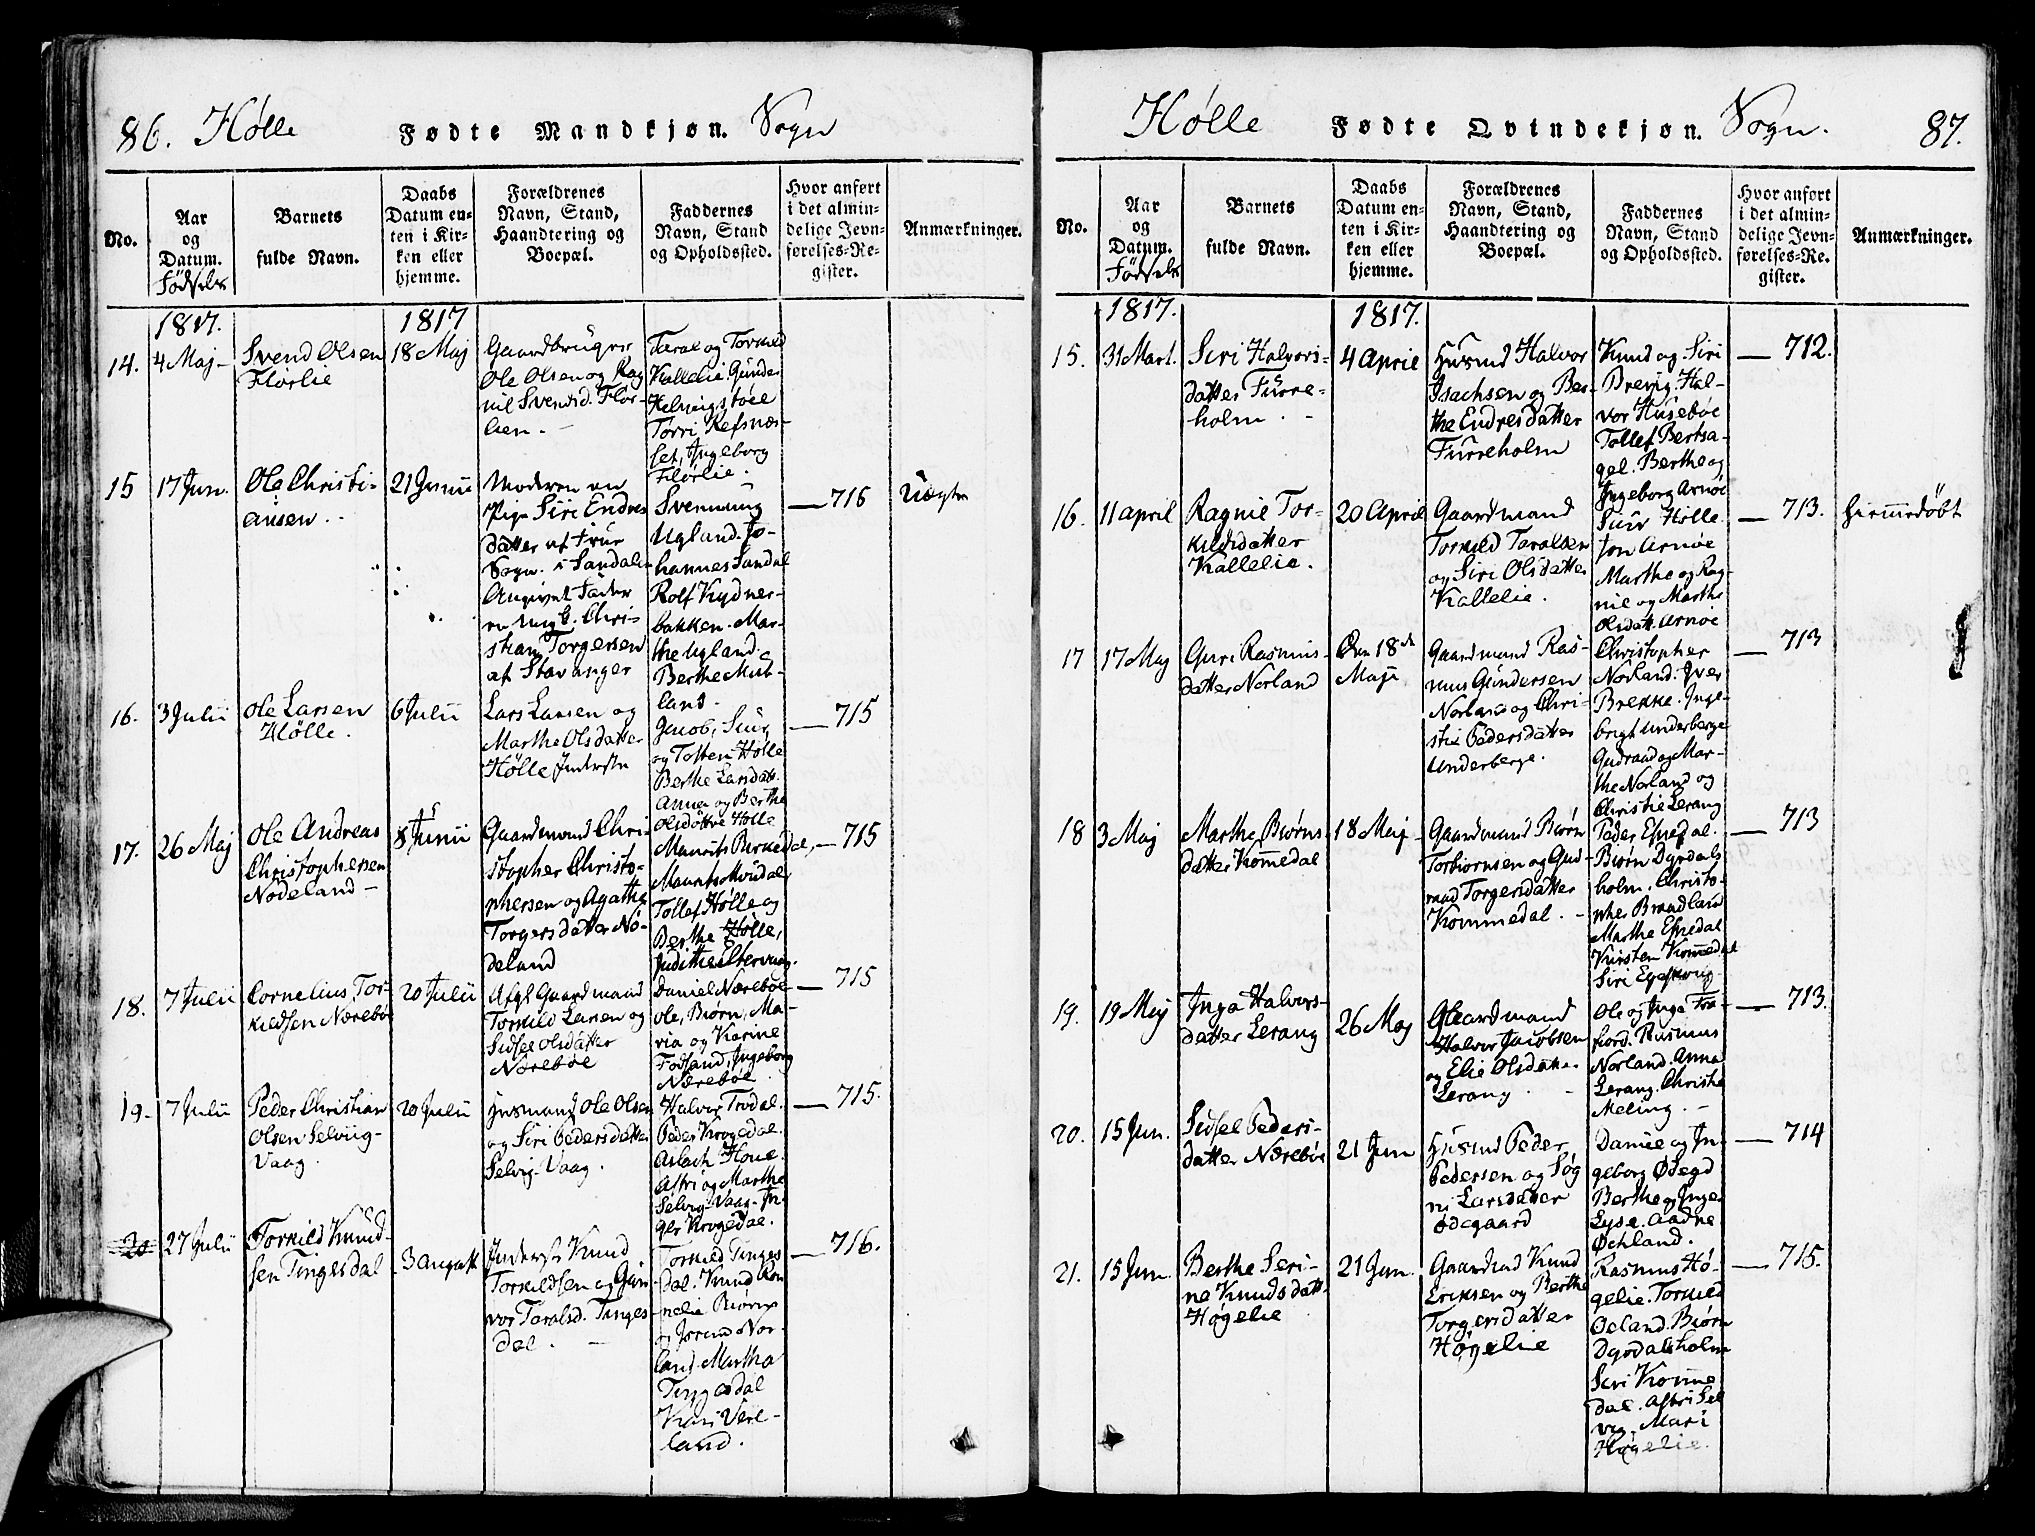 86. Hølle Fødte Mandkjøn. Sogn
No.
Aar
og
Datum.
Fødsels
Barnets
fulde Navn.
Daabs
Datum en-
ten i Kir-
ken eller
hjemme.
Forældrenes
Navn, Stand,
Haandtering og
Boepæl.
Faddernes
Navn, Stand
og Opholdssted.
Hvor anført
i det almin-
delige Jevn-
førelses-Re-
gister.
Anmærkninger.
1817.
1817
14.
4 Maj
Svend Olsen
Flørlie
18 Maj
Gaardbruger
Ole Olsen og Rag
nil Svendsd. Flør-
lien.
Taral og Torkild
Kallelie. Gunder
Helmingstøel
Torri Refsnæs-
set, Ingeborg
Flørlie.
15
17 Jun.
Ole Christi-
ansen.
21 Junii
Moderen en
Pige Siri Endres
datter af Frue
Sogn i Sandalen
Angivet Fader
en Ungk. Chri-
stian Torgersen
af Stavanger
Svennung
Ugland. Jo-
hannes Sandal
Rolf Kydner-
bakken. Mar-
the Ugland.
Berthe
land.
716
Uægte
16.
3 Julii
Ole Larsen
Hølle.
6 Julii
Lars Larsen og
Marthe Olsdatter
Hølle Inderste
Jacob, Siur,
og Tosten Hølle
Berthe Larsdatt.
Anna og Berthe
Olsdøttre Hølle
715
17.
26 Maj
Ole Andreas
Christophersen
Nødeland
8 Junii
Gaardmand Chri-
stopher Christo-
phersen og Agathe
Torgersdatter Nø-
deland
Maurits Birkedal,
Maurits Meidal
Tollef Hølle og
Berthe Hølle,
Judithe Eltervaag.
715
18.
7 Julii
Cornelius Tor-
kildsen Nærebø
20 Julii
Afgl. Gaardmand
Torkild Larsen og
Sidsel Olsdatter
Nærebøe
Daniel Nærebøe
Ole, Biørn, Ma-
ria og Karine
Fossand, Ingeborg
Nærebøe
715
19.
7 Julii
Peder Christian
Olsen Selviig-
Vaag
20 Julii
Husmand Ole Olsen
og Siri Pedersdatter
Selvig-Vaag.
Halvor Trodal.
Peder Krogedal.
Aslach Houe.
Astri og Marthe
Selvig-Vaag. In-
ger Krogedal.
715.
20
27 Julii
Torkild Knud-
sen Tingesdal
3 August
Inderste Knud
Torkildsen og Gun
vor Taralsd. Tinges-
dal.
Torkild Tinges
dal. Knud Ron-
nelie Biørn
og Jorend Nor-
land. Martha
Tinngesdal
Kari Veie-
land.
716.
Hølle Fødte Qvindekjøn. Sogn. 87.
No.
Aar
og
Datum.
Fødsels
Barnets
fulde Navn.
Daabs
Datum en-
ten i Kir-
ken eller
hjemme.
Forældrenes
Navn, Stand,
Haandtering og
Boepæl.
Faddernes
Navn, Stand
og Opholdssted.
Hvor anført
i det almin-
delige Jevn-
førelses-Re-
gister.
Anmærkninger.
1817.
1817.
15.
31 Mart.
Siri Halvors-
datter Furre-
holm.
4 April
Husmd Halvor
Isachsen og Ber-
the Endresdatter
Furreholm
Knud og Siri
Brevig. Hal-
vor Husebøe
Tollef Bertsa-
gel. Berthe og
Ingeborg Arnøe
712.
16.
11 April
Ragnil Tor-
kildsdatter
Kallelie.
20 April
Gaardmand
Torkild Taralsen
og Siri Olsdatter
Kallelie.
Siur Hølle.
Jon Arnøe
Marthe og Rag-
nil og Marthe
Olsdatt. Arnøe
713.
hiemmedøbt
17
17 Maj
Guri Rasmus-
datter Norland
Den 18de
Maji
Gaardmand Ras-
mus Gundersen
Norland og Chri-
stie Pedersdatter
Underberge.
Christopher
Norland. Iver
Brekke. Inge-
brigt Underberge
Gudraad og Mar-
the Norland og
Christie Lerang
713
18
3 Maj
Marthe Biørns-
datter Kommedal
18 Maj
Gaardmand Biørn
Torbiørnsen og Gud-
mud Torgersdatter
Kommedal.
Peder Espedal.
Biørn Dyrdals
holm. Christo-
pher Brandland
Marthe Espedal
Kirsten Kommedal
Siri
713
19.
19 Maj
Inga Halvors-
datter Lerang
26 Maj
Gaardmand
Halvor Jacobsen
og Elie Olsdatter
Lerang.
Ole og Inga Fra-
fiord. Rasmus
Norland. Anna
Lerang. Christie
Meling.
713.
20.
15 Jun.
Sidsel Peders-
datter Nærebøe
21 Jun
Husmd Peder
Pedersen og Søg
ni Larsdatter
Ødegaard
Daniel og In-
geborg Ødegd
Berthe og Inge
Lyse. Aadne
Øchland.
714
21.
15 Jun.
Berthe Seri-
ne Knudsdatt.
Høgelie
21 Jun.
Gaardmd Knud
Eriksen og Berthe
Torgersdatter
Høgelie
Rasmus Hø-
gelie. Torkild
Øeland. Biørn
Dyrdalsholm
Siri Komme
dal. Astri Sel
vig. Mari
Høgelie.
715.